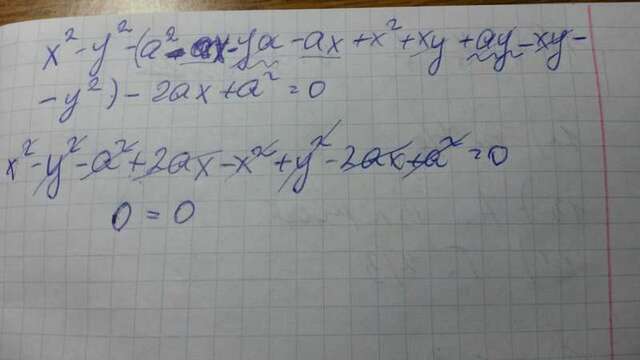 x² - y² - (a² - ax - ya - ax + x² + xy + ay - xy -
- y²) - 2ax + a² = 0
x² - y² - a² + 2ax - x² + y² - 2ax + a² = 0
0 = 0